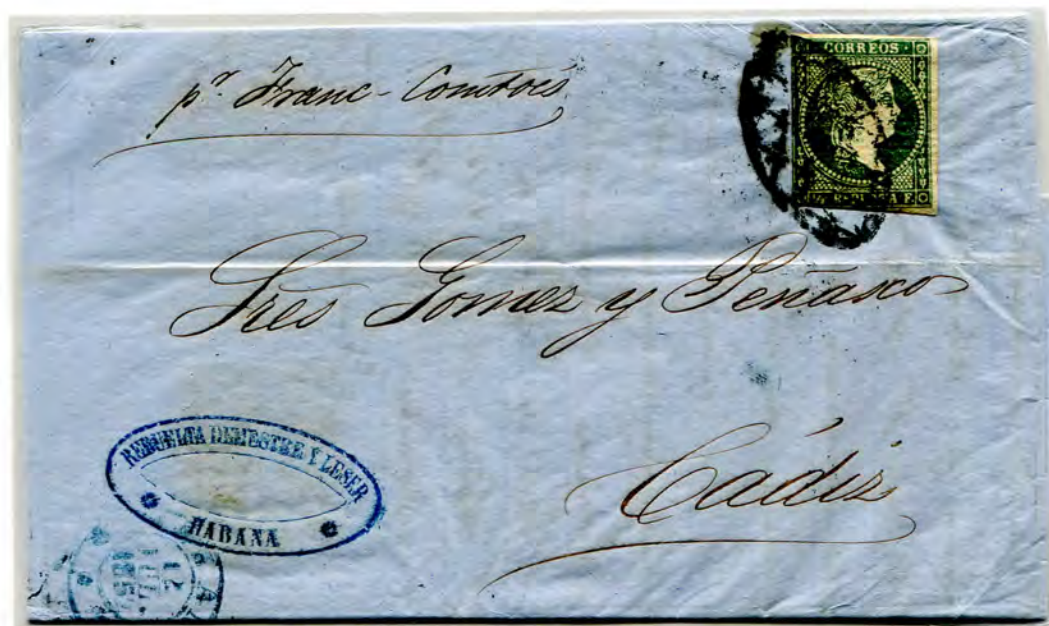 pr Franc-Comtois
CORREOS
PLATA F.
Sres Gomez y Peñasco
Cádiz
REBUELTA DEMESTRE Y LESER
HABANA